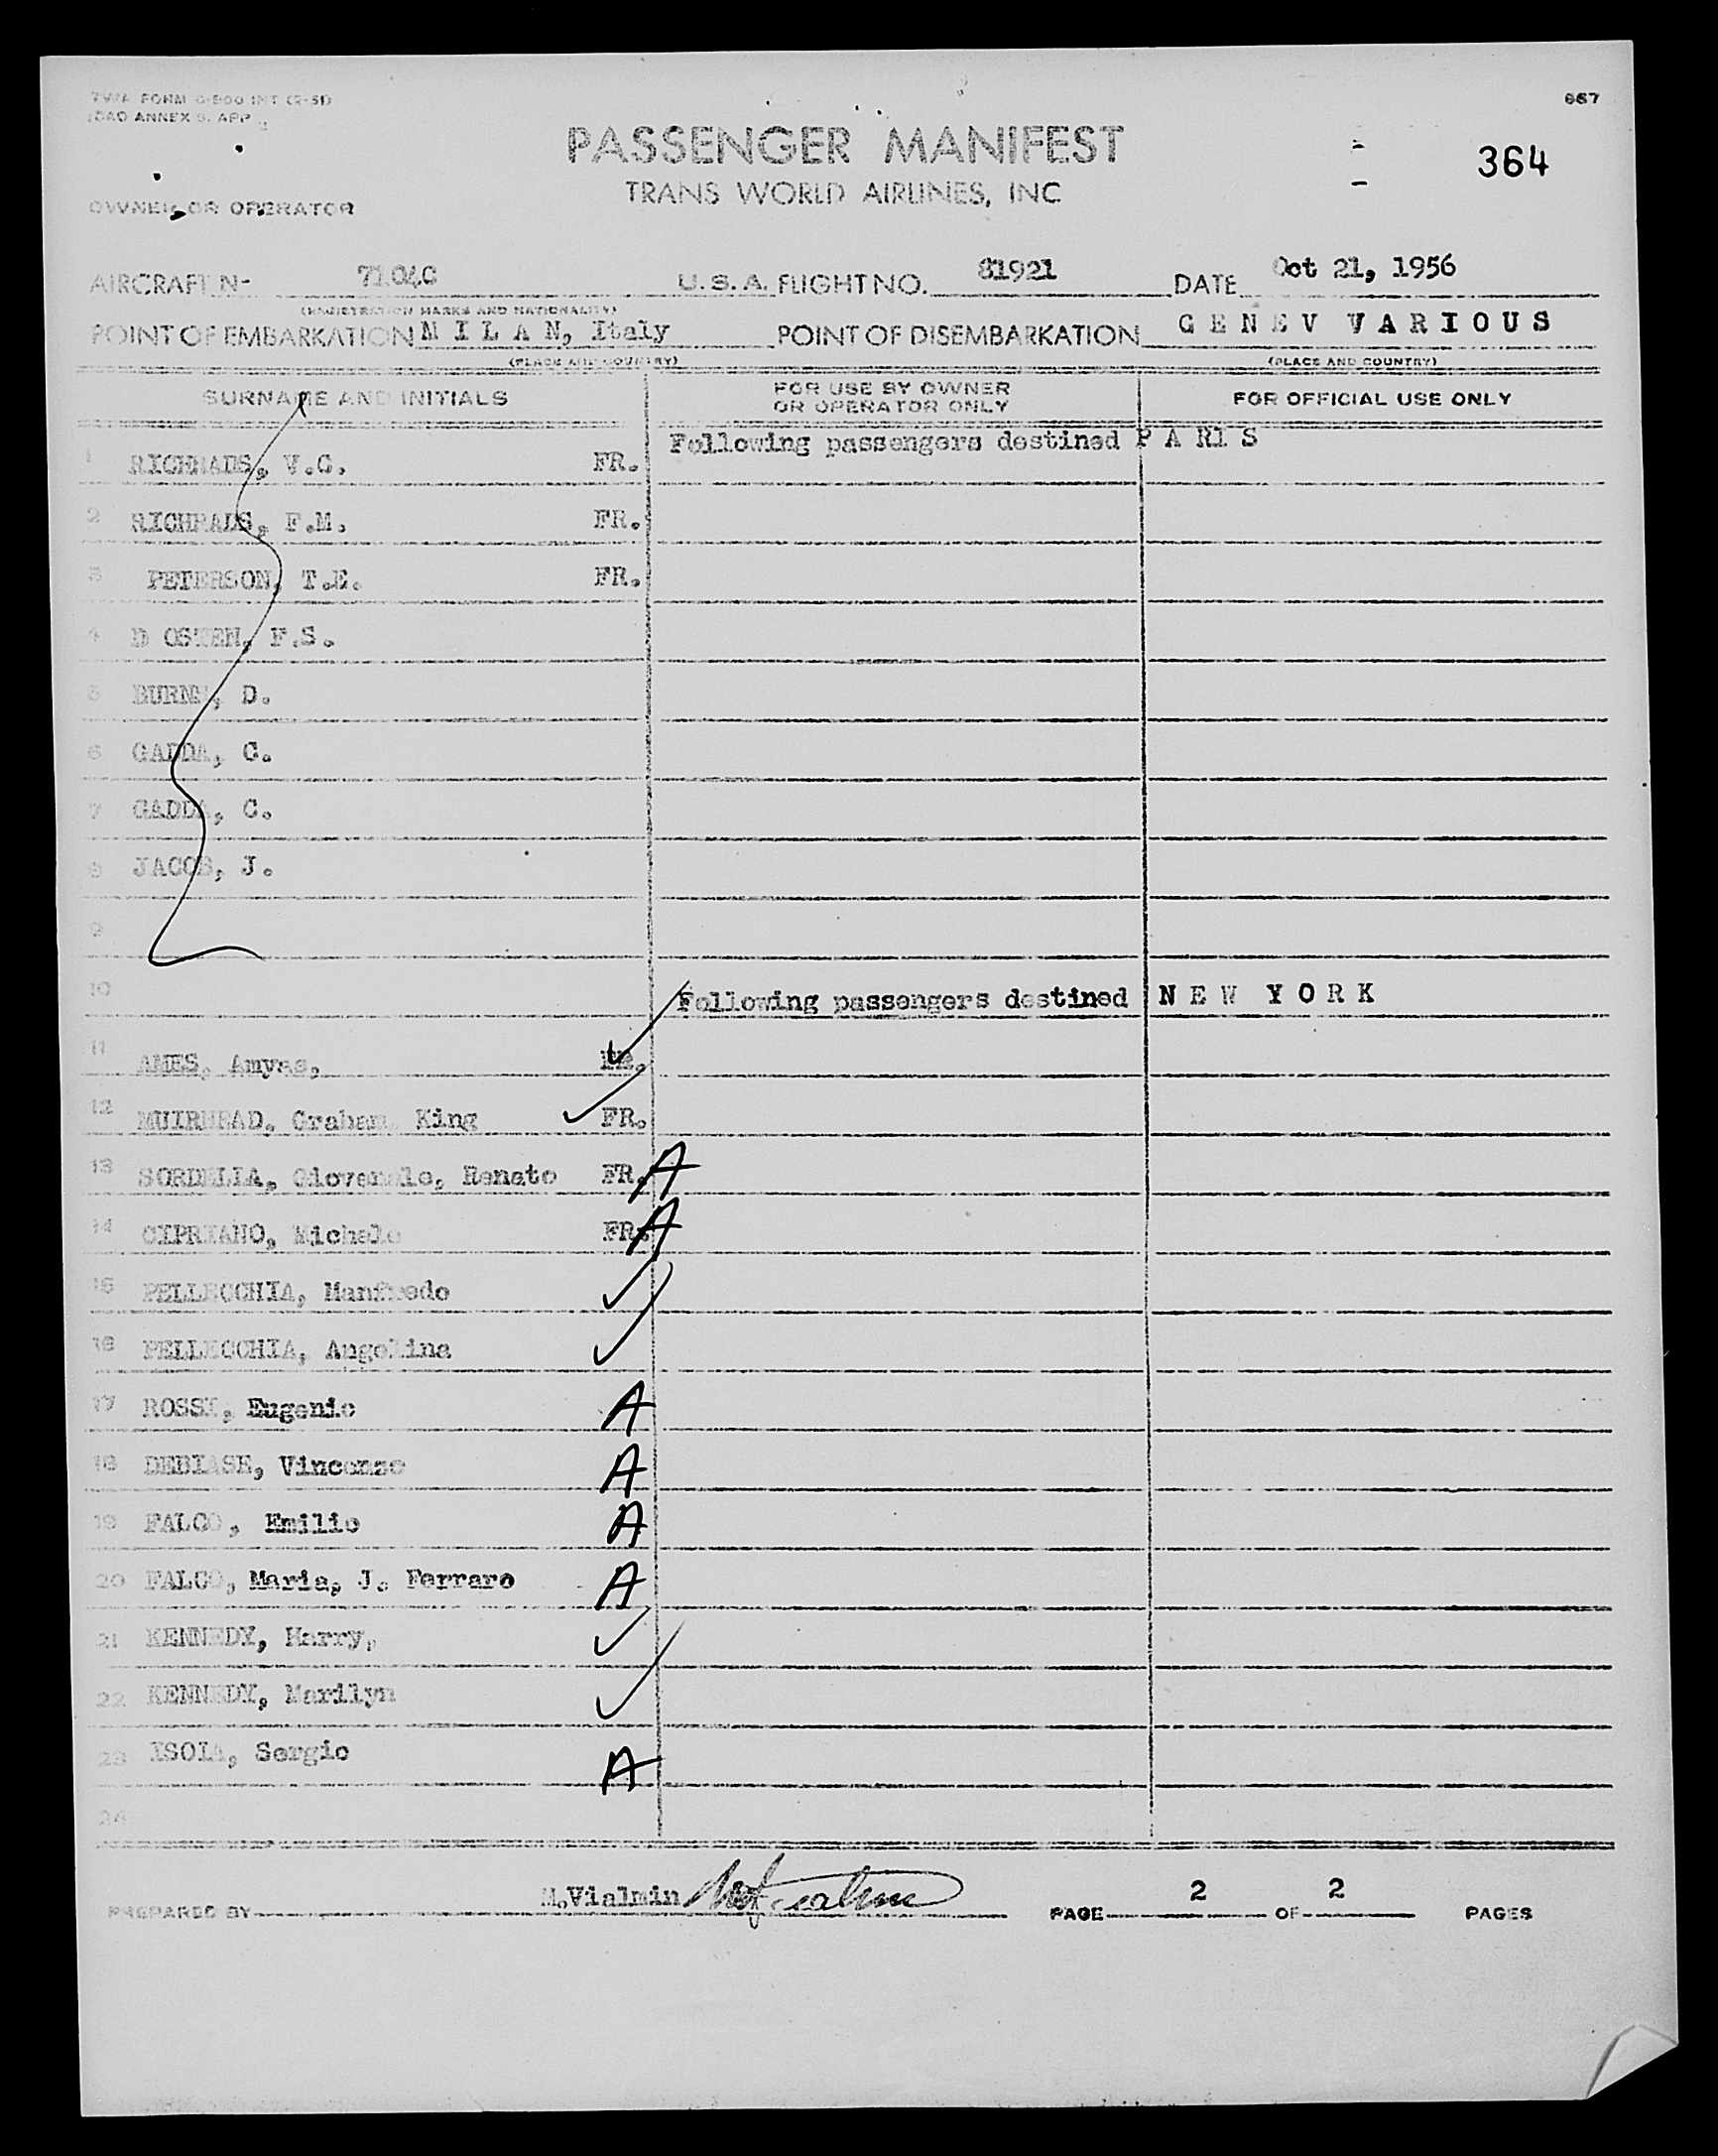 TWA FORM INT (2-51)
ICAO ANNEX 9, APP
667
PASSENGER MANIFEST
364
TRANS WORLD AIRLINES, INC
OWNER OR OPERATOR
AIRCRAFT N- 7104C U.S.A. FLIGHT NO. 81921 DATE Oct 21, 1956
(REGISTRATION MARKS AND NATIONALITY)
POINT OF EMBARKATION M I L A N, Italy POINT OF DISEMBARKATION G E N E V V A R I O U S
(PLACE AND COUNTRY) (PLACE AND COUNTRY)
SURNAME AND INITIALS FOR USE BY OWNER OR OPERATOR ONLY FOR OFFICIAL USE ONLY
Following passengers destined P A R I S
1 RICHRADS, V.C. FR.
2 RICHRADS, F.M. FR.
3 PETERSON, T.E. FR.
4 D OSTEN, F.S.
5 BURNS, D.
6 GADDA, C.
7 GADDA, C.
8 JACOB, J.
9
10 Following passengers destined N E W Y O R K
11 AMES, Amyas, FR.
12 MUIRHEAD, Graham King FR.
13 SORDELIA, Giovenale, Renato FR. A
14 CIPRIANO, Michele FR. A
15 PELLECCHIA, Manfredo
16 PELLECCHIA, Angelina
17 ROSSI, Eugenio A
18 DEBIASE, Vincenzo A
19 FALCO, Emilio A
20 FALCO, Maria, J. Ferraro A
21 KENNEDY, Harry,
22 KENNEDY, Marilyn
23 ISOLA, Sergio A
24
PREPARED BY M.Vialmin PAGE 2 OF 2 PAGES